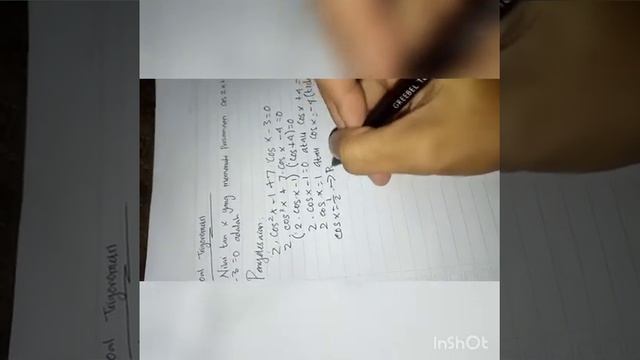 Trigonometri
Nilai tan x yang memenuhi Persamaan cos 2x +
-3 = 0 adalah
Penyelesaian:
2. cos²x - 1 + 7 cos x - 3 = 0
2. cos²x + 7 cos x - 4 = 0
(2. cos x - 1) (cos + 4) = 0
2. cos x - 1 = 0 atau cos x + 4 =
2 cos x = 1 atau cos x = -4 (
cos x = 1/2 →
GREEBEL
InShOt